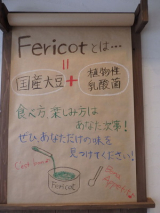 Fericotとは…
=
国産大豆 + 植物性乳酸菌
食べ方 楽しみ方は
あなた次第!
ぜひ、あなただけの味を
見つけてください!
Fericot